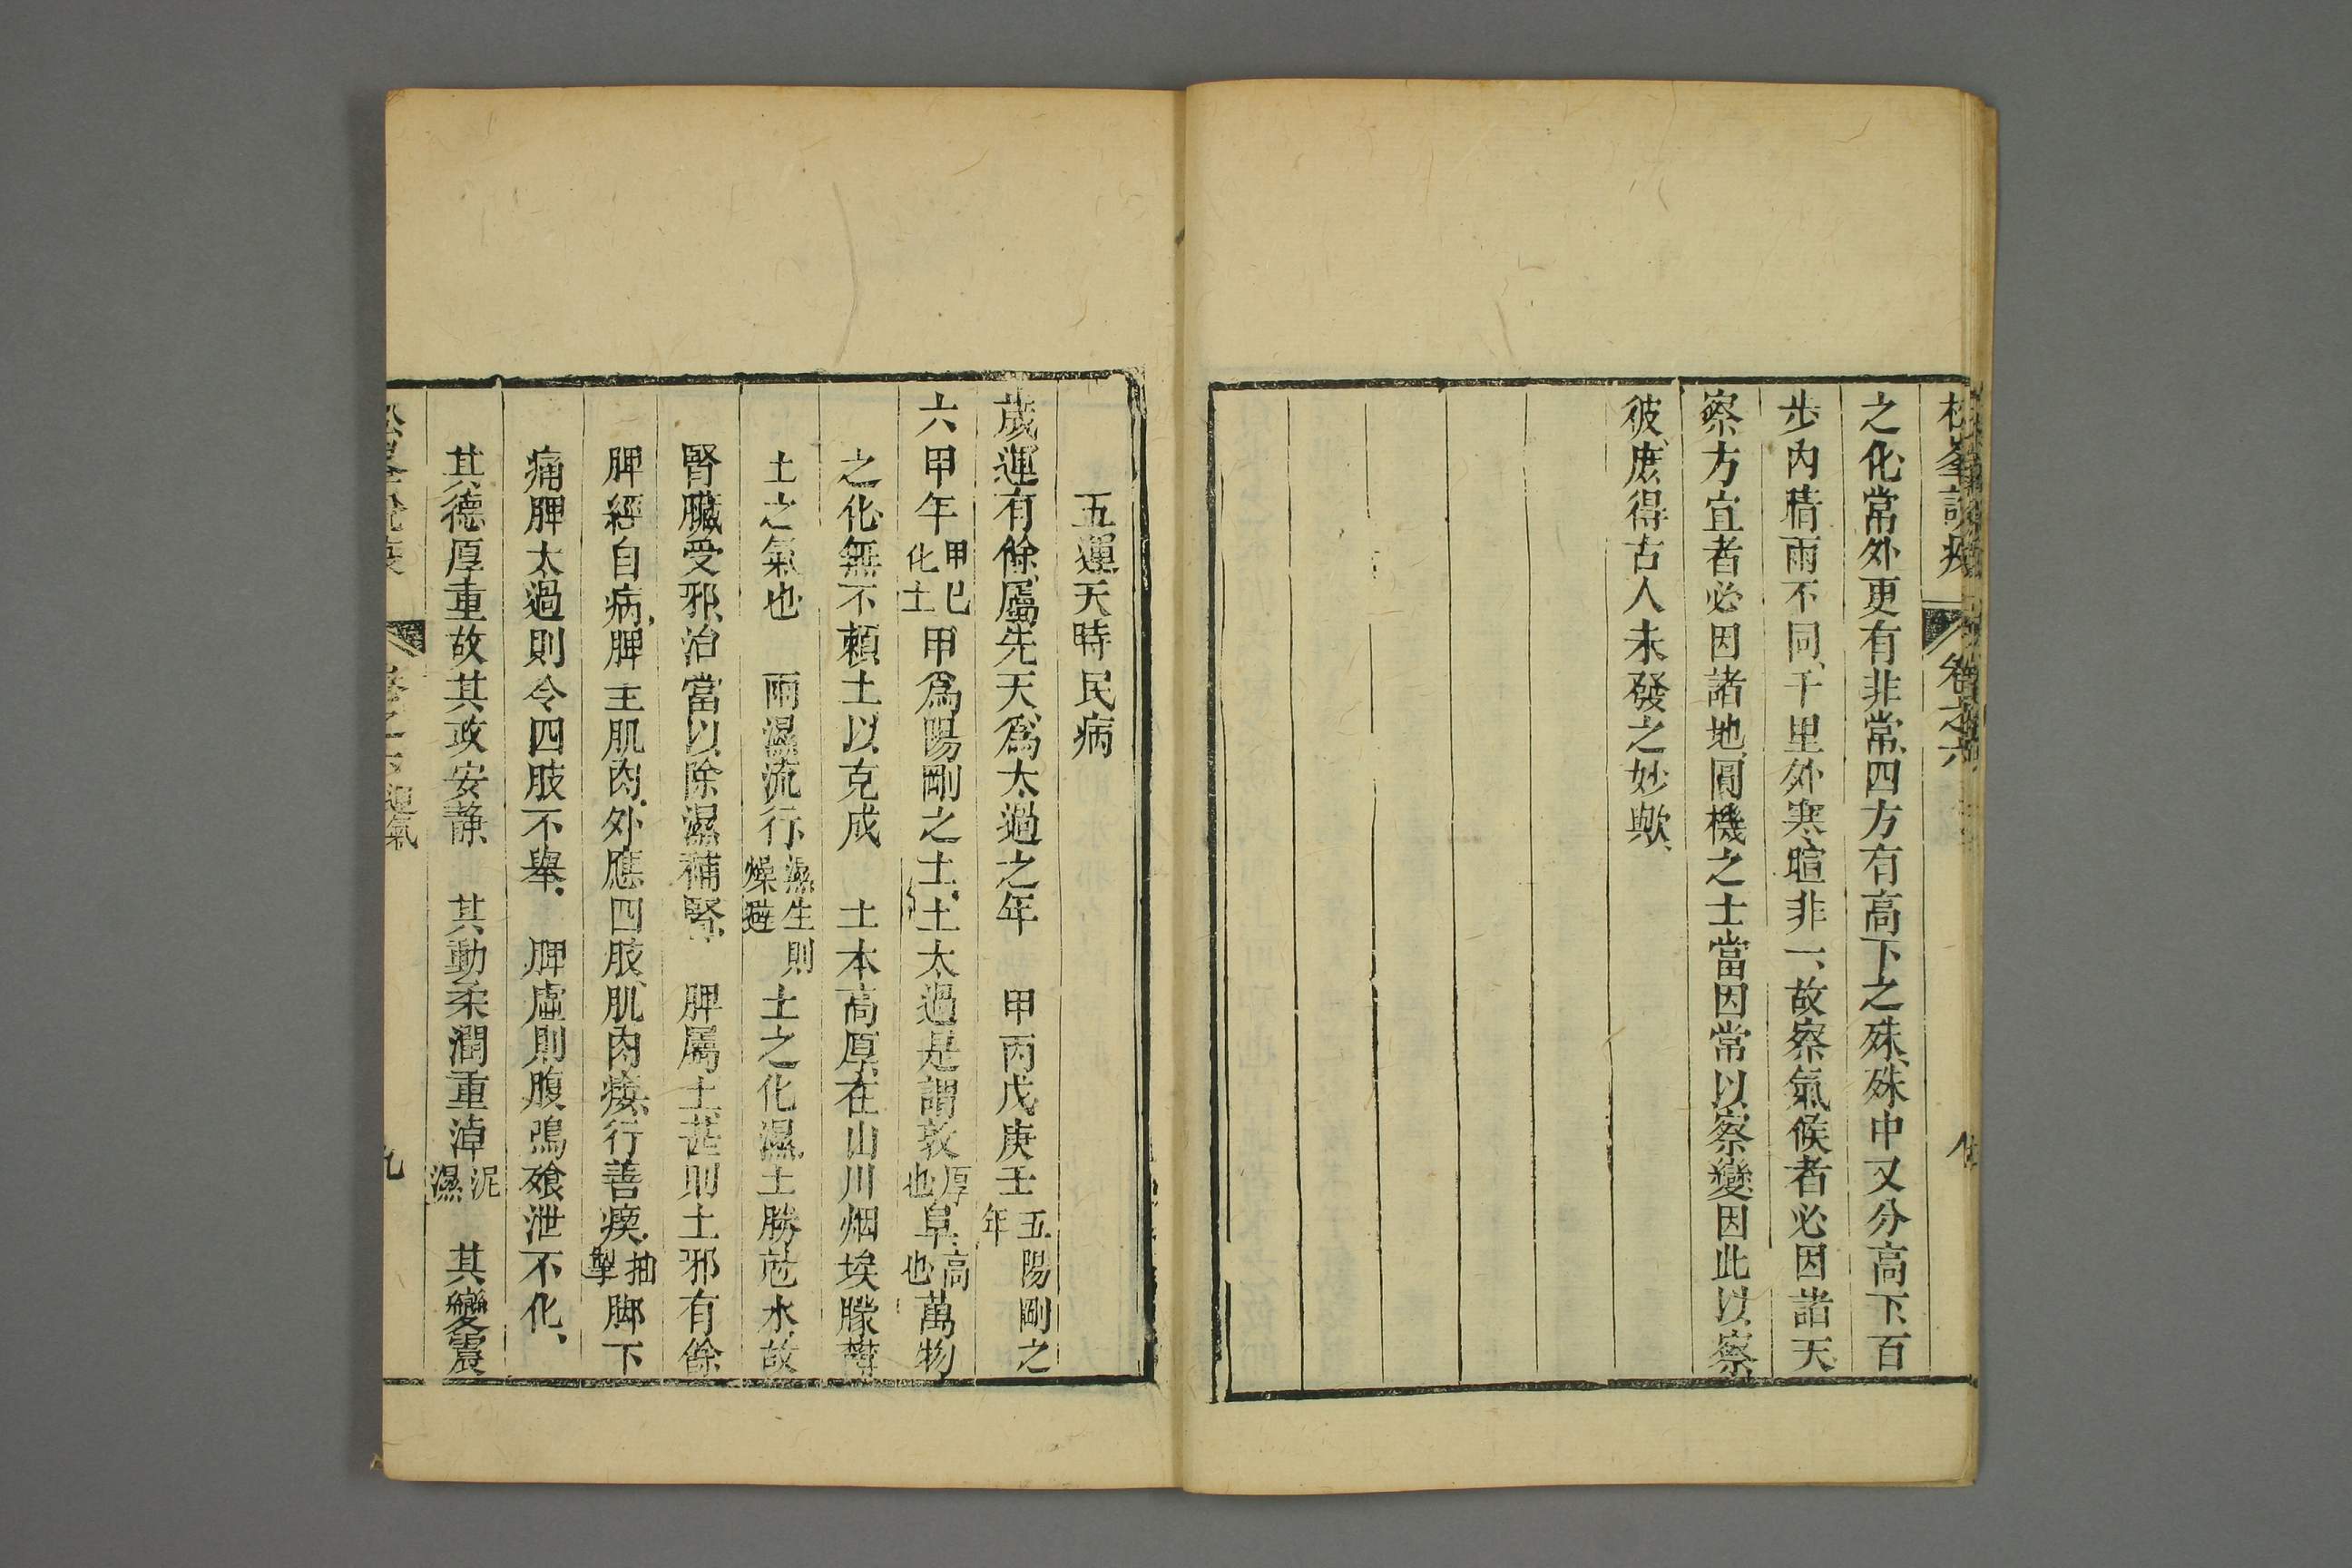 之化、常外更有非常、四方有高下之殊、殊中又分高下、百
步內晴雨不同、千里外寒暄非一、故察氣候者必因諸天、
察方宜者必因諸地、圓機之士當因常以察變因此以察
彼、庶得古人未發之妙歟、
五運天時民病
歲運有餘、屬先天、爲太過之年　甲丙戊庚壬五陽剛之年
六甲年甲已化土甲爲陽剛之土、土太過是謂敦厚也阜、高也萬物
之化、無不賴土以克成　土本高厚、在山川烟埃朦鬱
土之氣也　雨濕流行、濕生則燥避土之化濕、土勝尅水、故
腎臟受邪、治當以除濕補腎、　脾屬土、甚則土邪有餘
脾經自病、脾主肌肉、外應四肢、肌肉痿、行善瘈、抽掣脚下
痛脾太過則令四肢不舉、　脾虛則腹鳴飧泄不化、
其德厚重故其政安靜　其動柔潤重淖泥濕　其變震
卷之六
運氣
九